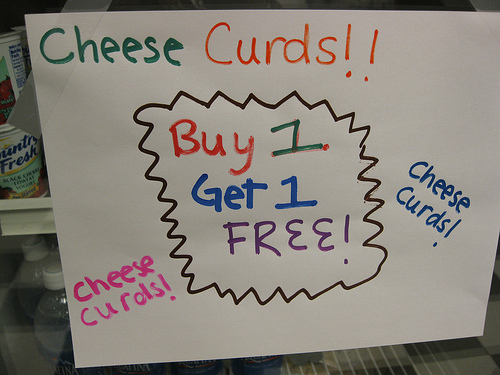 Cheese Curds!!
Buy 1.
Get 1
FREE!
cheese
curds!
cheese
curds!
Fresh
BLACK CHERRY